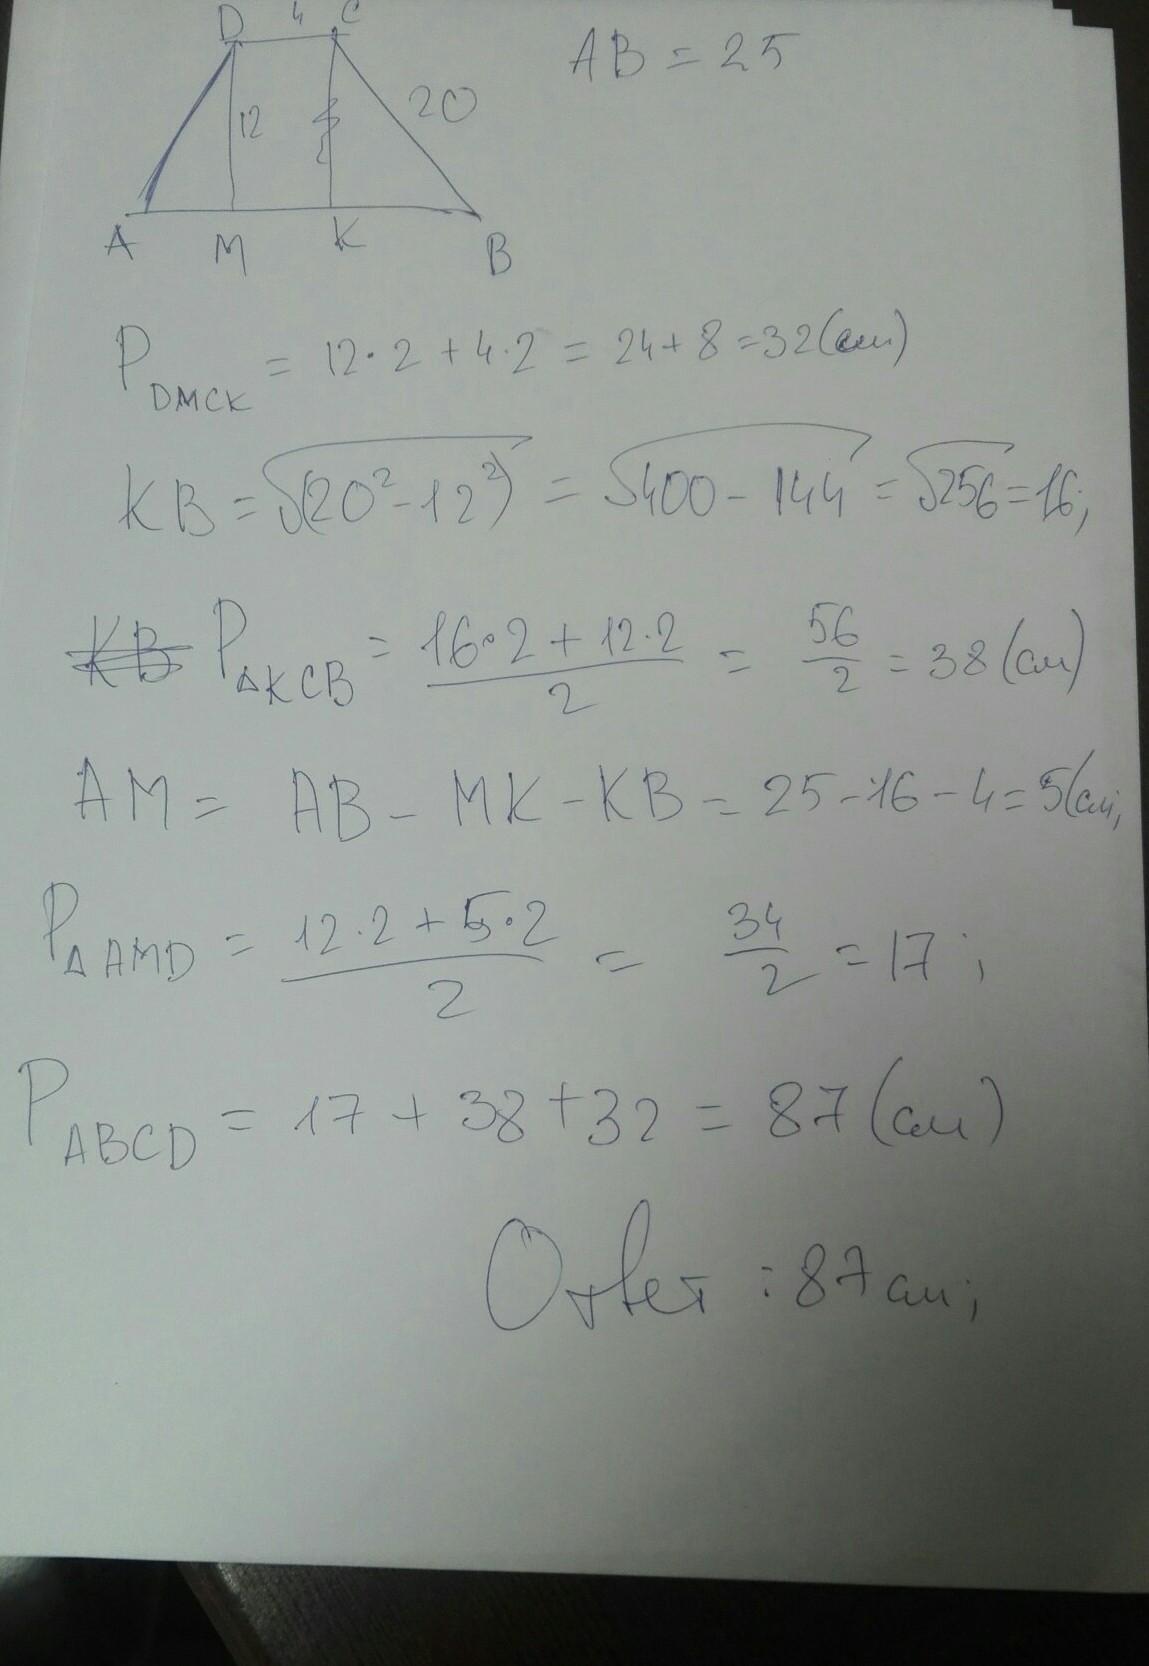 D 4 C
AB = 25
12
20
A M K B
P DMCK = 12·2 + 4·2 = 24 + 8 = 32 (см)
KB = √(20² - 12²) = √400 - 144 = √256 = 16;
KB P ΔKCB = 16·2 + 12·2 / 2 = 56 / 2 = 38 (см)
AM = AB - MK - KB = 25 - 16 - 4 = 5 (см;
P Δ AMD = 12·2 + 5·2 / 2 = 34 / 2 = 17;
P ABCD = 17 + 38 + 32 = 87 (см)
Ответ: 87 см;